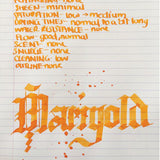 SHEEN - minimal
SATURATION - low → medium
DRYING TIMES - normal to a bit long
WATER RESISTANCE - none
FLOW - good, normal
SCENT - none
SMUDGE - none
CLEANING: low
OUTLINE - none
Marigold